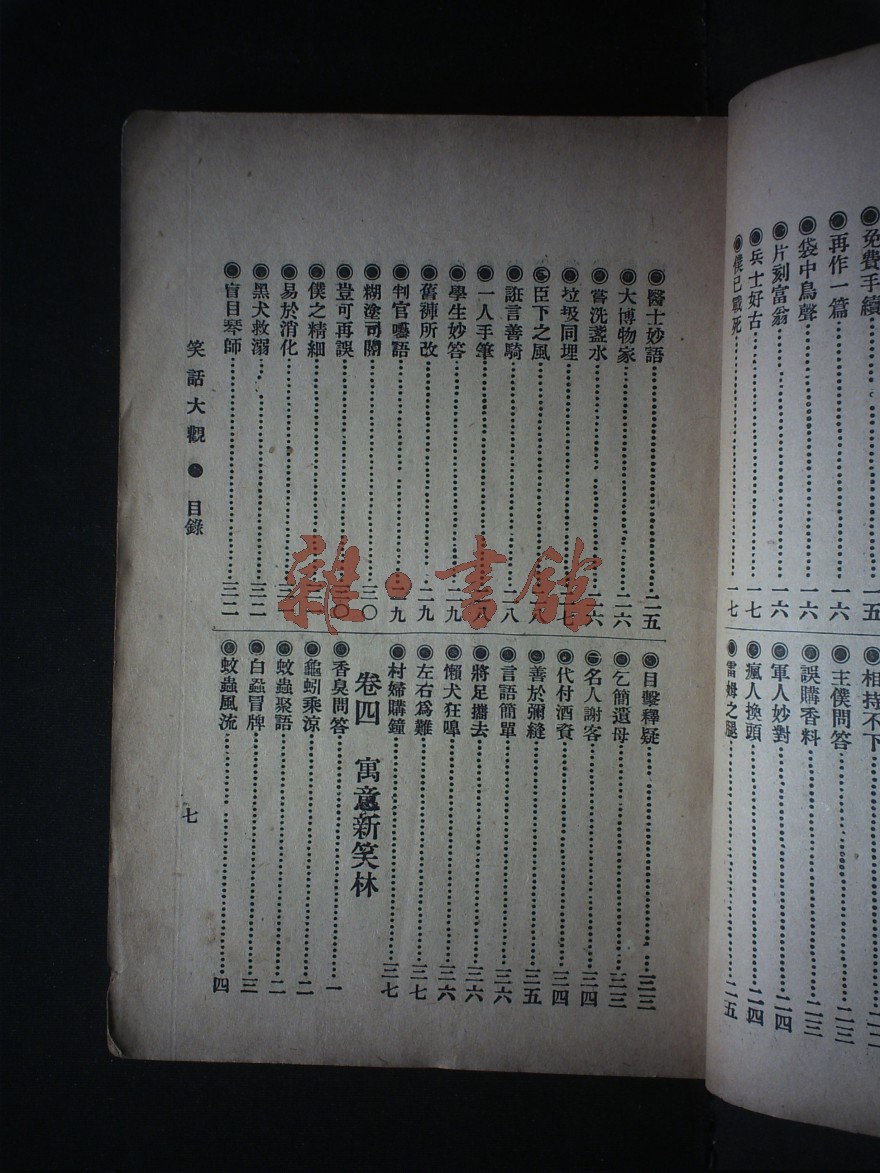 免費手續 一五
再作一篇 一六
袋中鳥聲 一六
片刻富翁 一六
兵士好古 一七
僕已戰死 一七
相持不下 二二
主僕問答 二三
誤購香料 二三
軍人妙對 二四
瘋人換頭 二四
雷姆之腿 二五
醫士妙語 二五
大博物家 二六
嘗洗盞水 二六
垃圾同埋
臣下之風
誑言善騎 二八
一人手筆
學生妙答 二九
舊褲所改 二九
判官囈語 二九
糊塗司閽 三〇
豈可再誤 三〇
僕之精細
易於消化
黑犬救溺 三二
盲目琴師 三二
目擊釋疑 三三
乞簡遺母 三三
名人謝客 三四
代付酒資 三四
善於彌縫 三五
言語簡單 三六
將足攜去 三六
懶犬狂嘷 三六
左右爲難 三七
村婦購鐘 三七
卷四 寓意新笑林
香臭問答 一
龜蚓乘涼 二
蚊蟲聚語 二
白蝨冒牌 三
蚊蟲風流 四
笑話大觀 目錄
七
雜·書館